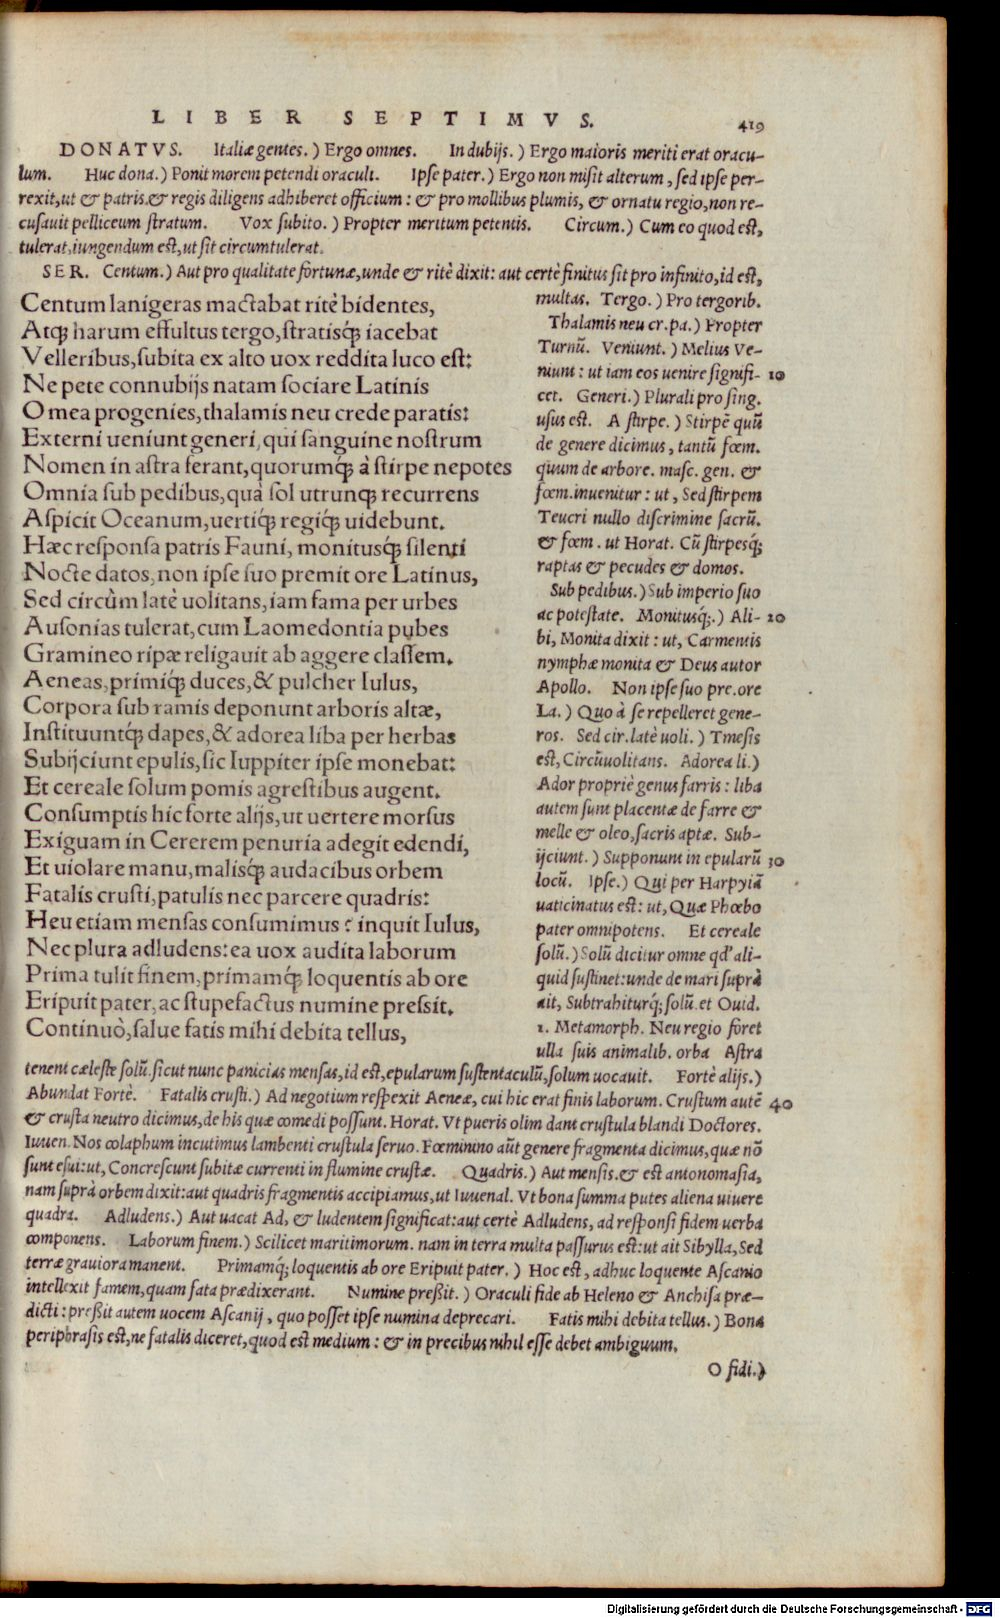 LIBER SEPTIMVS.
419
DONATVS. Italiæ gentes.) Ergo omnes. In dubijs.) Ergo maioris meriti erat oracu-
lum. Huc dona.) Ponit morem petendi oraculi. Ipse pater.) Ergo non misit alterum, sed ipse per-
rexit, ut & patris & regis diligens adhiberet officium: & pro mollibus plumis, & ornatu regio, non re-
cusauit pelliceum stratum. Vox subito.) Propter meritum petentis. Circum.) Cum eo quod est,
tulerat, iungendum est, ut sit circumtulerat.
SER. Centum.) Aut pro qualitate fortunæ, unde & ritè dixit: aut certè finitus sit pro infinito, id est,
Centum lanigeras mactabat ritè bidentes,
Atq; harum effultus tergo, stratisq́; iacebat
Velleribus, subita ex alto uox reddita luco est:
Ne pete connubijs natam sociare Latinis
O mea progenies, thalamis neu crede paratis:
Externi ueniunt generi, qui sanguine nostrum
Nomen in astra ferant, quorumq́; à stirpe nepotes
Omnia sub pedibus, quà sol utrunq; recurrens
Aspicit Oceanum, uertiq́; regiq́; uidebunt.
Hæc responsa patris Fauni, monitusq́; silenti
Nocte datos, non ipse suo premit ore Latinus,
Sed circùm latè uolitans, iam fama per urbes
Ausonias tulerat, cum Laomedontia pubes
Gramineo ripæ religauit ab aggere classem.
Aeneas, primiq́; duces, & pulcher Iulus,
Corpora sub ramis deponunt arboris altæ,
Instituuntq́; dapes, & adorea liba per herbas
Subijciunt epulis, sic Iuppiter ipse monebat:
Et cereale solum pomis agrestibus augent.
Consumptis hic forte alijs, ut uertere morsus
Exiguam in Cererem penuria adegit edendi,
Et uiolare manu, malisq́; audacibus orbem
Fatalis crusti, patulis nec parcere quadris:
Heu etiam mensas consumimus? inquit Iulus,
Nec plura adludens: ea uox audita laborum
Prima tulit finem, primamq́; loquentis ab ore
Eripuit pater, ac stupefactus numine pressit.
Continuò, salue fatis mihi debita tellus,
multas. Tergo.) Pro tergorib.
Thalamis neu cr. pa.) Propter
Turnū. Veniunt.) Melius Ve-
niunt: ut iam eos uenire signifi- 10
cet. Generi.) Plurali pro sing.
usus est. A stirpe.) Stirpē quū
de genere dicimus, tantū fœm.
quum de arbore. masc. gen. &
fœm. inuenitur: ut, Sed stirpem
Teucri nullo discrimine sacrū.
& fœm. ut Horat. Cū stirpesq́;
raptas & pecudes & domos.
Sub pedibus.) Sub imperio suo
ac potestate. Monitusq́;.) Ali- 20
bi, Monita dixit: ut, Carmentis
nymphæ monita & Deus autor
Apollo. Non ipse suo pre. ore
La.) Quo à se repelleret gene-
ros. Sed cir. latè uoli.) Tmesis
est, Circūuolitans. Adorea li.)
Ador propriè genus farris: liba
autem sunt placentæ de farre &
melle & oleo, sacris aptæ. Sub-
ijciunt.) Supponunt in epularū 30
locū. Ipse.) Qui per Harpyiā
uaticinatus est: ut, Quæ Phœbo
pater omnipotens. Et cereale
solū.) Solū dicitur omne qd' ali-
quid sustinet: unde de mari suprà
ait, Subtrahiturq́; solū. et Ouid.
1. Metamorph. Neu regio foret
ulla suis animalib. orba Astra
tenent cæleste solū. sicut nunc panicias mensas, id est, epularum sustentaculū, solum uocauit. Fortè alijs.)
Abundat Fortè. Fatalis crusti.) Ad negotium respexit Aeneæ, cui hic erat finis laborum. Crustum autē 40
& crusta neutro dicimus, de his quæ comedi possunt. Horat. Vt pueris olim dant crustula blandi Doctores.
Iuuen. Nos colaphum incutimus lambenti crustula seruo. Fœminino aūt genere fragmenta dicimus, quæ nō
sunt esui: ut, Concrescunt subitæ currenti in flumine crustæ. Quadris.) Aut mensis. & est antonomasia,
nam suprà orbem dixit: aut quadris fragmentis accipiamus, ut Iuuenal. Vt bona summa putes aliena uiuere
quadra. Adludens.) Aut uacat Ad, & ludentem significat: aut certè Adludens, ad responsi fidem uerba
componens. Laborum finem.) Scilicet maritimorum. nam in terra multa passurus est: ut ait Sibylla, Sed
terræ grauiora manent. Primamq́; loquentis ab ore Eripuit pater.) Hoc est, adhuc loquente Ascanio
intellexit famem, quam fata prædixerant. Numine preßit.) Oraculi fide ab Heleno & Anchisa præ-
dicti: preßit autem uocem Ascanij, quo posset ipse numina deprecari. Fatis mihi debita tellus.) Bona
periphrasis est, ne fatalis diceret, quod est medium: & in precibus nihil esse debet ambiguum.
O fidi.)
Digitalisierung gefördert durch die Deutsche Forschungsgemeinschaft - DFG